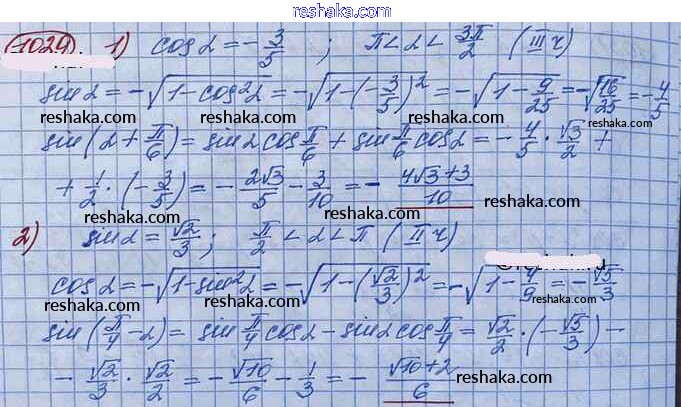 www.reshaka.com
1029. 1) cos α = -3/5 ; π < α < 3π/2 (III ч)
sin α = -√(1-cos²α) = -√(1-(-3/5)²) = -√(1-9/25) = -√(16/25) = -4/5
reshaka.com reshaka.com reshaka.com
sin(α + π/6) = sin α cos π/6 + sin π/6 cos α = -4/5 · √3/2 +
+ 1/2 · (-3/5) = -2√3/5 - 3/10 = - (4√3+3)/10
reshaka.com reshaka.com reshaka.com
2) sin α = √2/3 ; π/2 < α < π (II ч)
cos α = -√(1-sin²α) = -√(1-(√2/3)²) = -√(1-4/9) = -√5/3
reshaka.com reshaka.com reshaka.com
sin(π/4 - α) = sin π/4 cos α - sin α cos π/4 = √2/2 · (-√5/3) -
- √2/3 · √2/2 = -√10/6 - 1/3 = - (√10+2)/6
reshaka.com reshaka.com reshaka.com